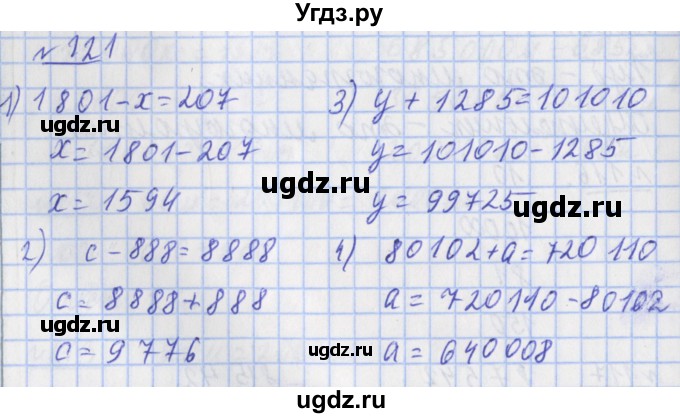 Угдз.ру
№ 121
1) 1801-x=207
x=1801-207
x=1594
2) c-888=8888
c=8888+888
c=9776
3) y+1285=101010
y=101010-1285
y=99725
4) 80102+a=720110
a=720110-80102
a=640008
ugdz.ru
ugdz.ru
ugdz.ru
ugdz.ru
ugdz.ru
ugdz.ru
ugdz.ru
ugdz.ru